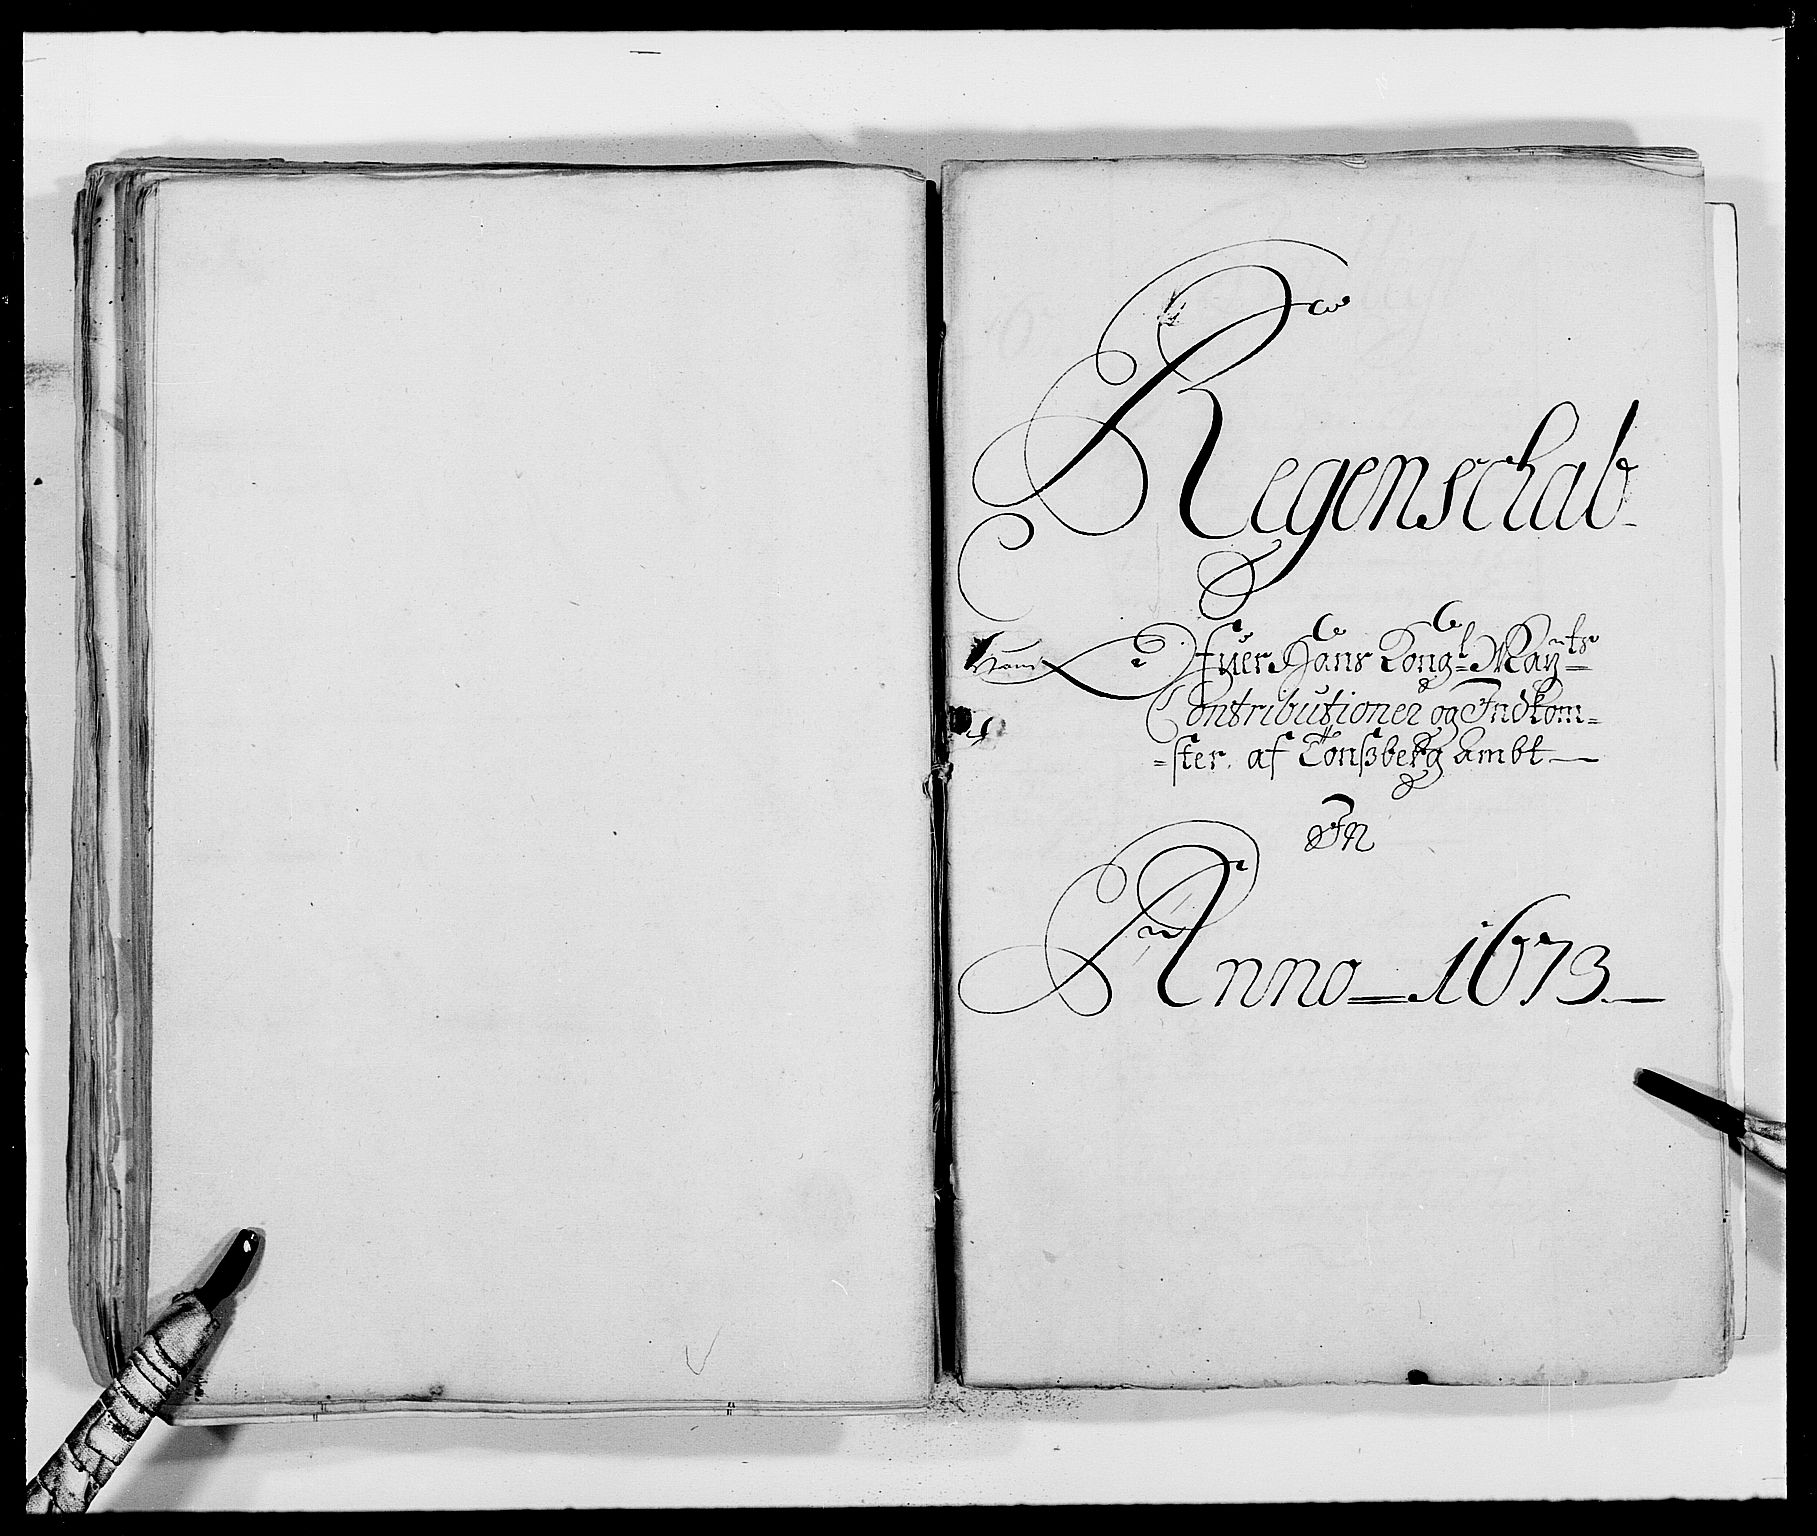 Regenschab
Ofuer Hans Kongl. Mayts
Contributioner og Indkom=
=ster. af Tonsberg Ambt
In
Anno 1673